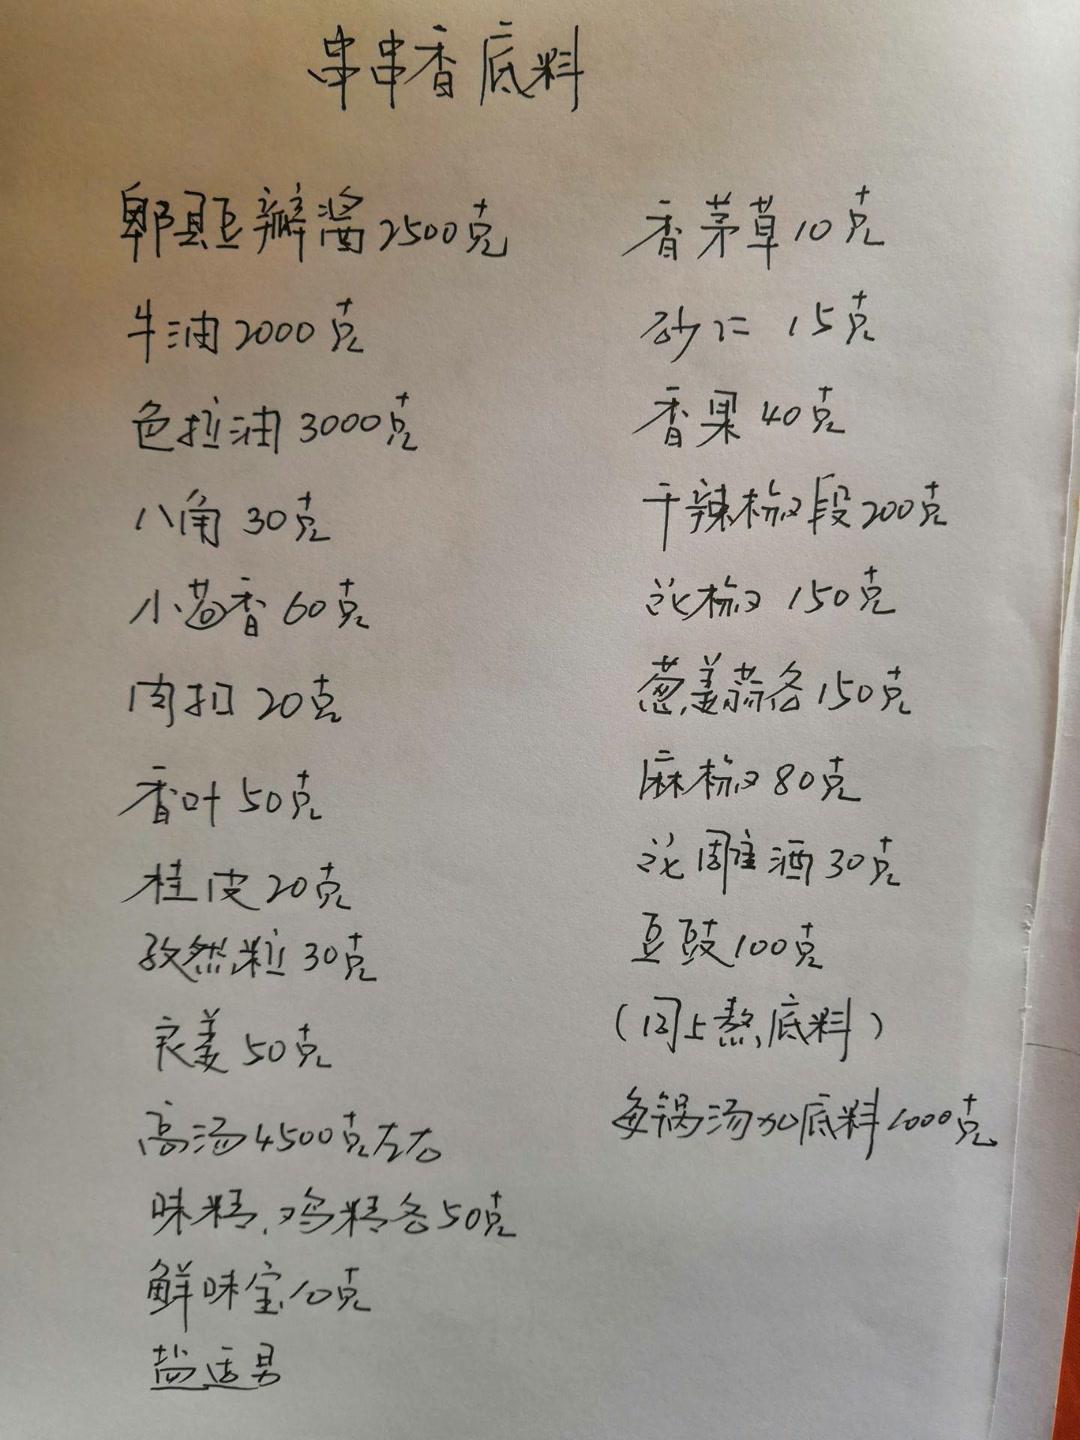 串串香底料
郫县豆瓣酱2500克
牛油2000克
色拉油3000克
八角30克
小茴香60克
肉扣20克
香叶50克
桂皮20克
孜然粒30克
良姜50克
高汤4500克左右
味精、鸡精各50克
鲜味宝10克
盐适男
香茅草10克
砂仁15克
香果40克
干辣椒段200克
花椒150克
葱姜蒜各150克
麻椒80克
花雕酒30克
豆豉100克
(同上熬底料)
每锅汤加底料1000克